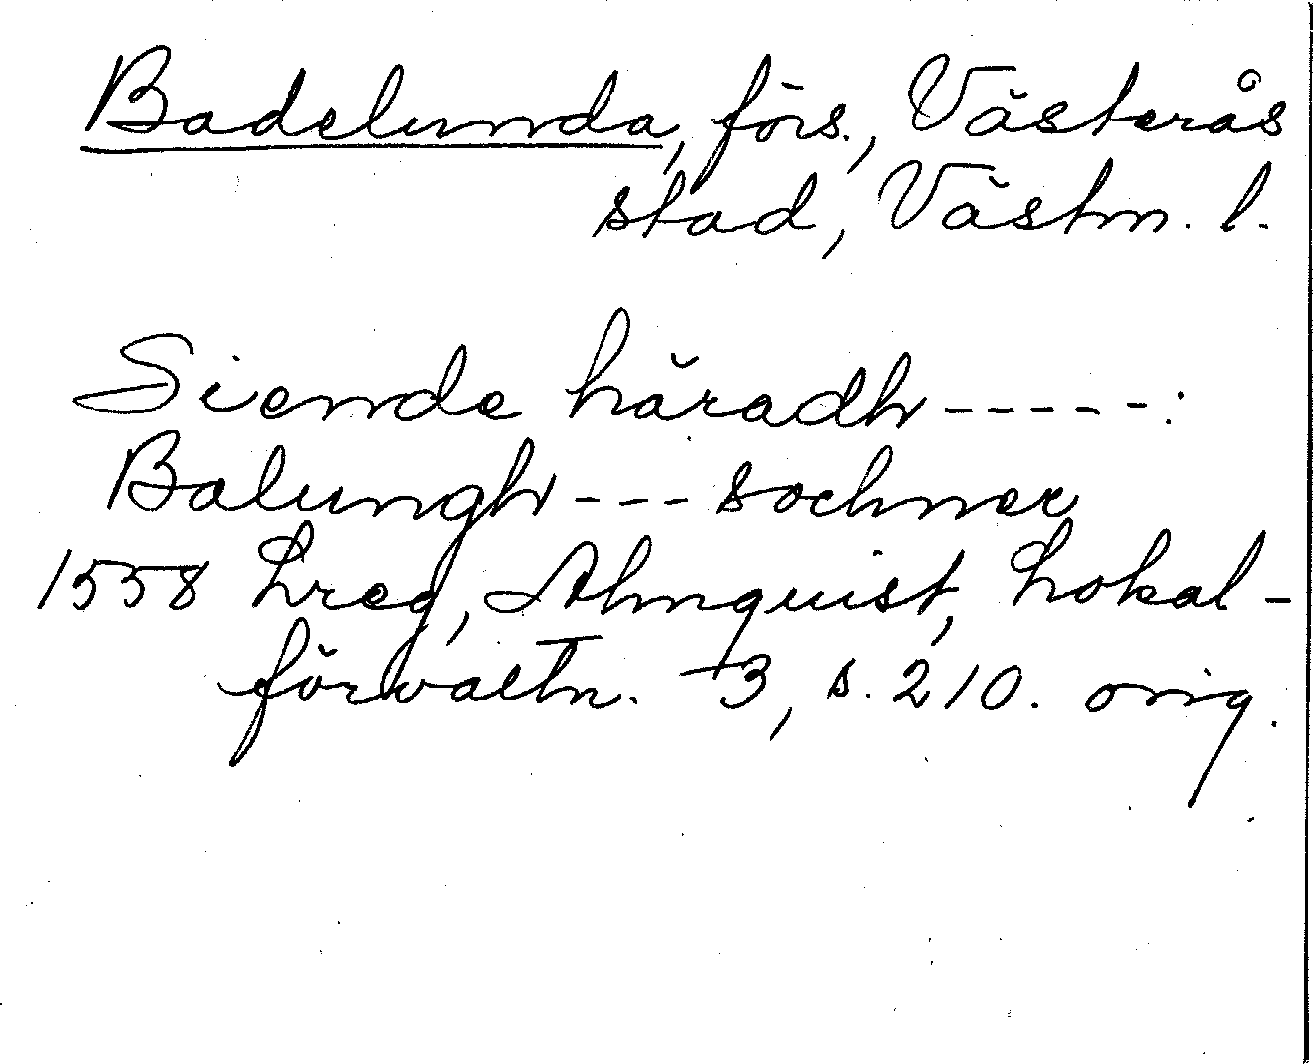 Badelunda, förs., Västerås
stad, Västm. l.
Siende häradh-----:
Balungh---sochner
1558 Lreg, Almquist, Lokal-
förvaltn. 3, s. 210. orig.